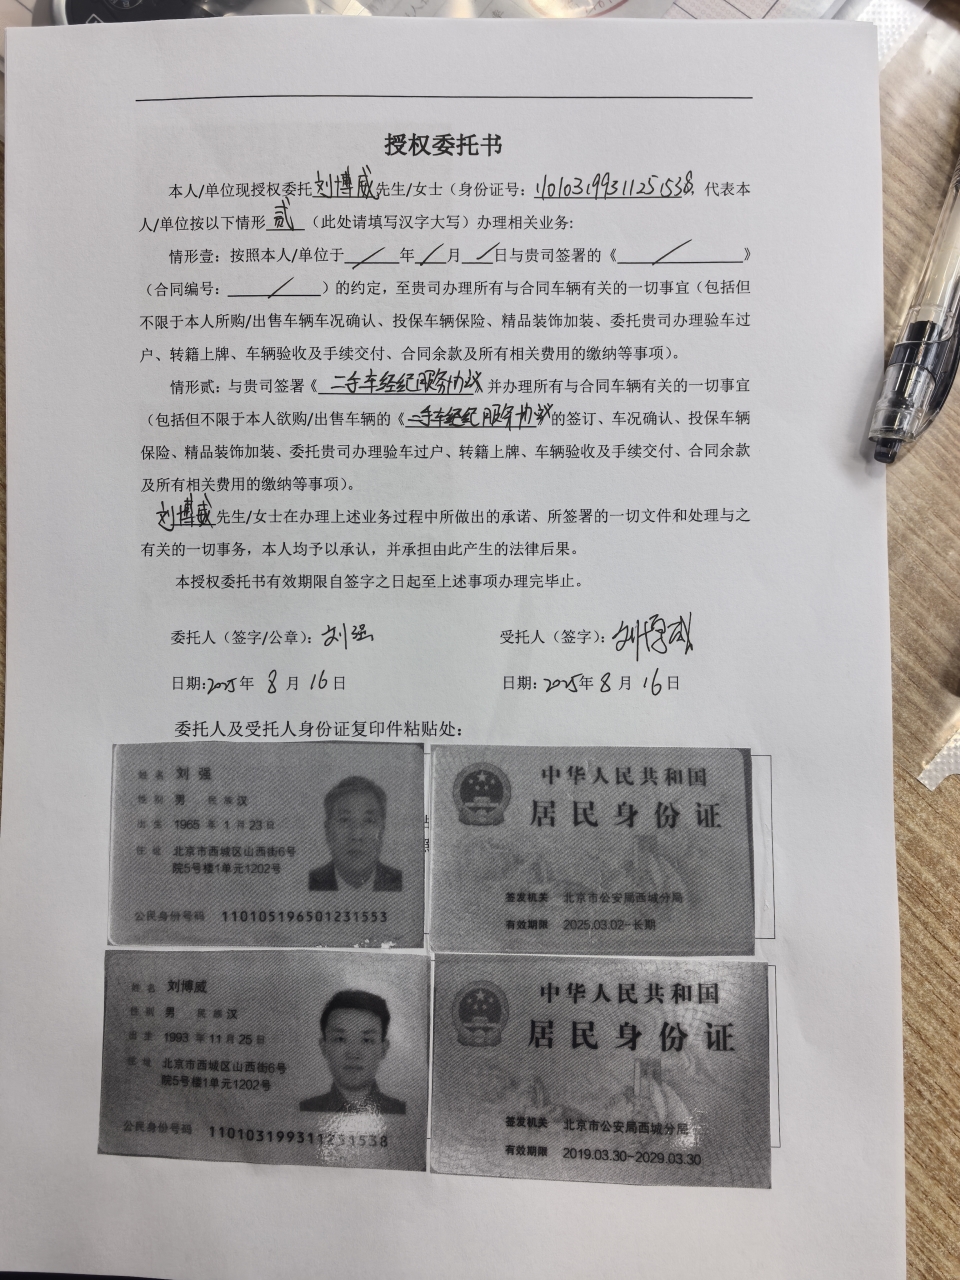 授权委托书
本人/单位现授权委托刘博威先生/女士（身份证号：110103199311251538，代表本
人/单位按以下情形贰（此处请填写汉字大写）办理相关业务:
情形壹：按照本人/单位于／年／月／日与贵司签署的《／》
（合同编号：／）的约定，至贵司办理所有与合同车辆有关的一切事宜（包括但
不限于本人所购/出售车辆车况确认、投保车辆保险、精品装饰加装、委托贵司办理验车过
户、转籍上牌、车辆验收及手续交付、合同余款及所有相关费用的缴纳等事项）。
情形贰：与贵司签署《二手车经纪服务协议》并办理所有与合同车辆有关的一切事宜
（包括但不限于本人欲购/出售车辆的《二手车经纪服务协议》的签订、车况确认、投保车辆
保险、精品装饰加装、委托贵司办理验车过户、转籍上牌、车辆验收及手续交付、合同余款
及所有相关费用的缴纳等事项）。
刘博威先生/女士在办理上述业务过程中所做出的承诺、所签署的一切文件和处理与之
有关的一切事务，本人均予以承认，并承担由此产生的法律后果。
本授权委托书有效期限自签字之日起至上述事项办理完毕止。
委托人（签字/公章）：刘强 受托人（签字）：刘博威
日期:2025年 8月 16日 日期：2025年 8月 16日
委托人及受托人身份证复印件粘贴处：
姓名 刘强
性别 男 民族 汉
出生 1965年1月23日
住址 北京市西城区山西街6号
院5号楼1单元1202号
公民身份号码 110105196501231553
中华人民共和国
居民身份证
签发机关 北京市公安局西城分局
有效期限 2025.03.02-长期
姓名 刘博威
性别 男 民族 汉
出生 1993年11月25日
住址 北京市西城区山西街6号
院5号楼1单元1202号
公民身份号码 110103199311251538
中华人民共和国
居民身份证
签发机关 北京市公安局西城分局
有效期限 2019.03.30-2029.03.30